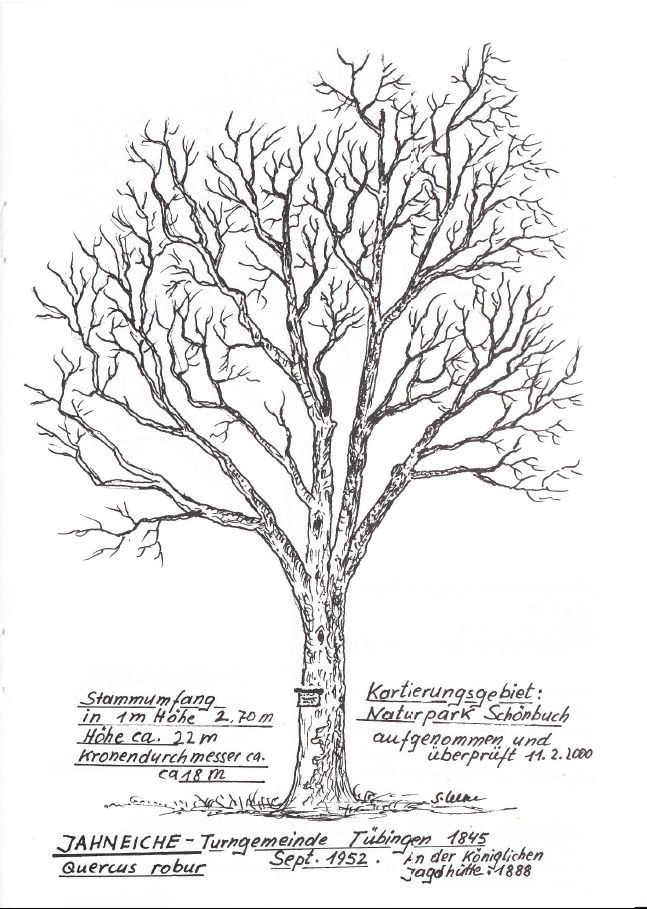 Stammumfang
in 1m Höhe 2,70m
Höhe ca. 22m
Kronendurchmesser ca.
ca 18m
Kartierungsgebiet:
Naturpark Schönbuch
aufgenommen und
überprüft 11.2.2000
JAHNEICHE - Turngemeinde Tübingen 1845
Quercus robur
Sept. 1952.
An der Königlichen
Jagdhütte: 1888